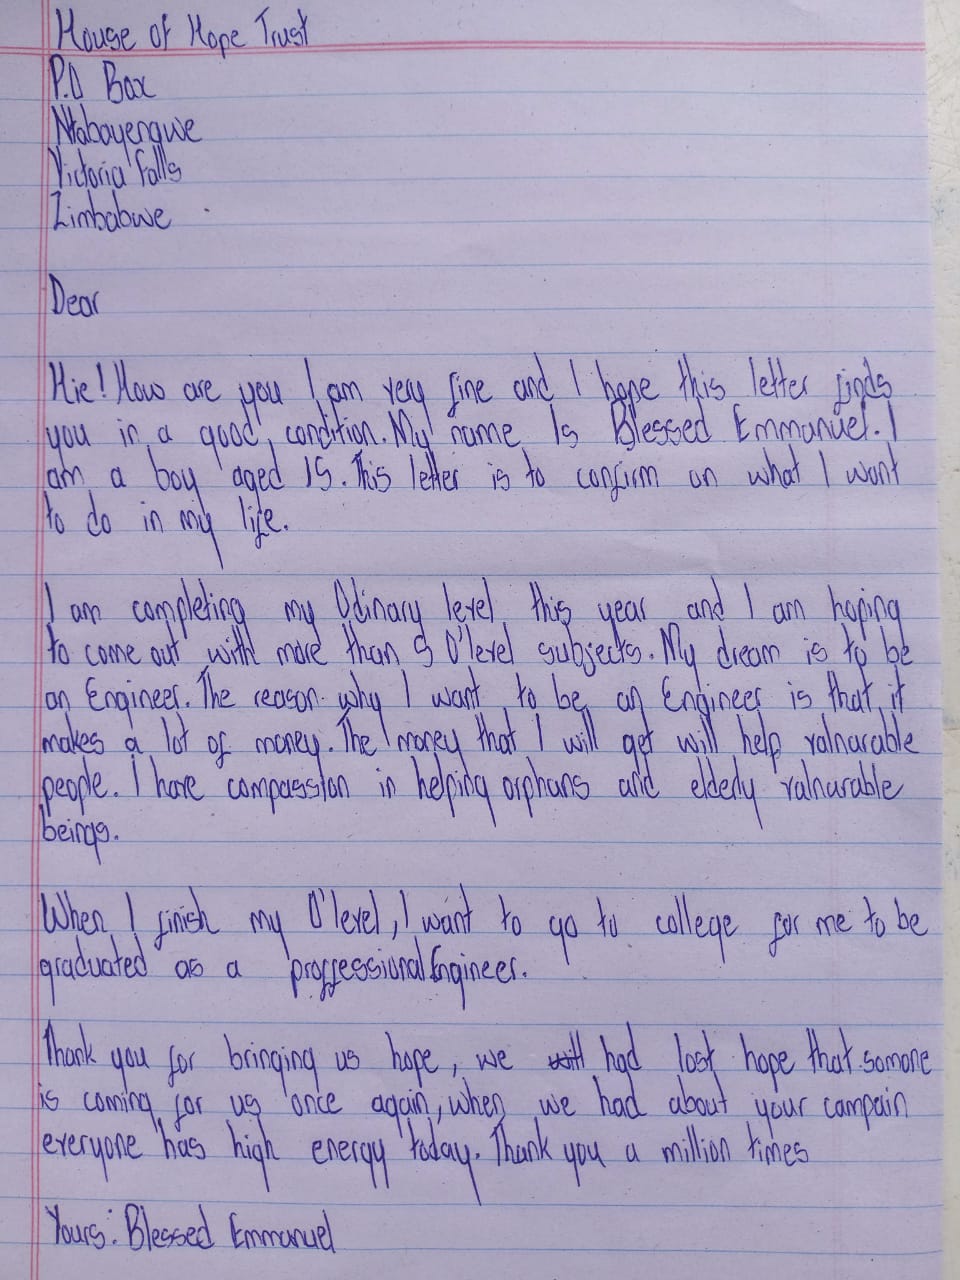 House of Hope Trust
P.O Box
Ntabayengwe
Victoria falls
Zimbabwe
Dear
Hie! How are you I am very fine and I hope this letter finds
you in a good condition. My name Is Blessed Emmanuel. I
am a boy aged 15. This letter is to confirm on what I want
to do in my life.
I am completing my Odinary level this year and I am hoping
to come out with more than 5 O'level subjects. My dream is to be
an Engineer. The reason why I want to be an Engineer is that it
makes a lot of money. The money that I will get will help valnarable
people. I have compassion in helping orphans and eldedy valnarable
beings.
When I finish my O'level, I want to go to college for me to be
graduated as a proffessional Engineer.
Thank you for bringing us hope, we had lost hope that somone
is coming for us once again, when we had about your campain
everyone has high energy today. Thank you a million times
Yours: Blessed Emmanuel